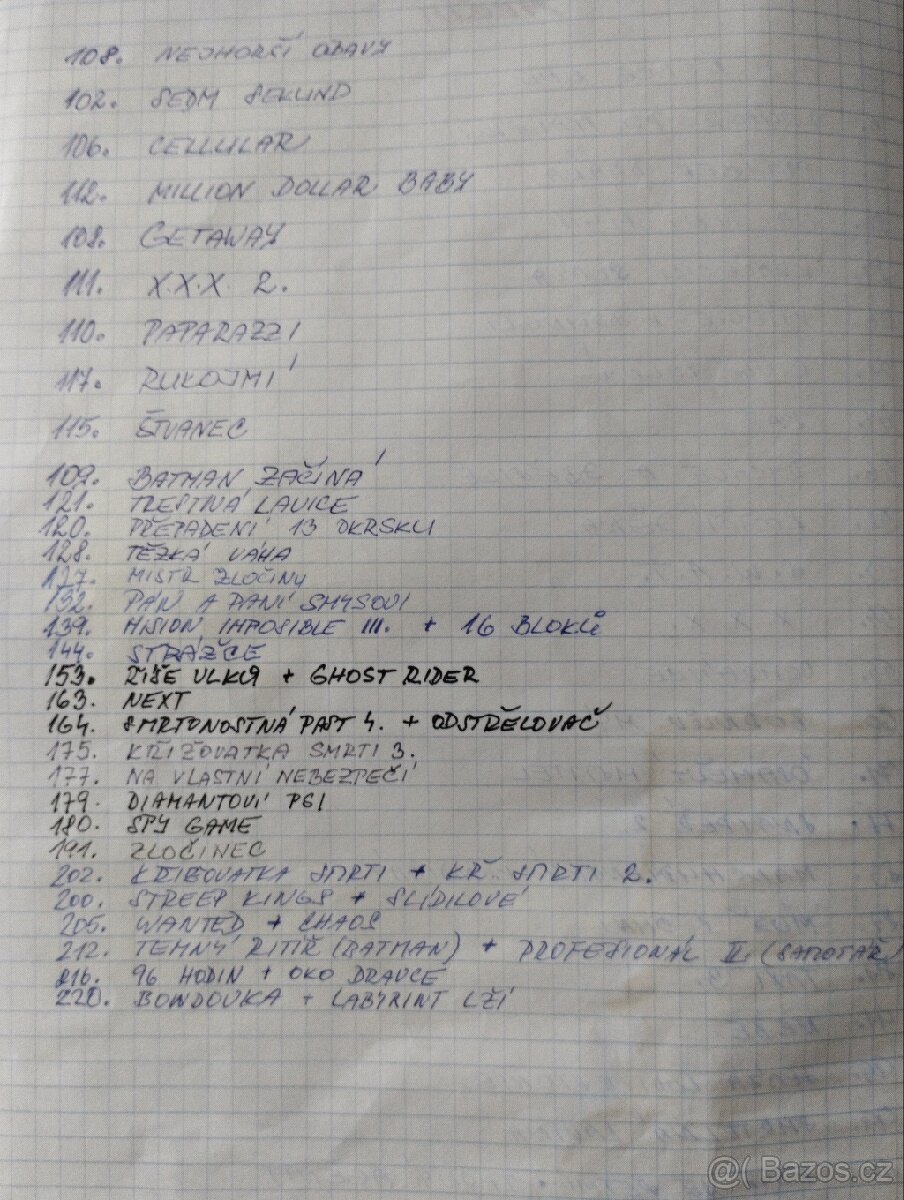 108. NEJHORŠÍ OBAVY
102. SEDM SEKUND
106. CELLULAR
112. MILLION DOLLAR BABY
108. GETAWAY
111. X.X.X 2.
110. PAPARAZZI
117. RUKOJMÍ
115. ŠTVANEC
109. BATMAN ZAČÍNÁ
121. TRESTNÁ LAVICE
120. PŘEPADENÍ 13 OKRSKU
128. TĚŽKÁ VÁHA
127. MISTR ZLOČINU
132. PÁN A PANÍ SMYSOVI
139. MISION IMPOSIBLE III. + 16 BLOKŮ
144. STRÁŽCE
153. ŘÍŠE VLKŮ + GHOST RIDER
163. NEXT
164. SMRTONOSTNÁ PAST 4. + ODSTŘELOVAČ
175. KŘIŽOVATKA SMRTI 3.
177. NA VLASTNÍ NEBEZPEČÍ
179. DIAMANTOVÍ PSI
180. SPY GAME
191. ZLOČINEC
202. KŘIŽOVATKA SMRTI + KŘ. SMRTI 2.
200. STREEP KINGS + SLÍDILOVÉ
205. WANTED + CHAOS
212. TEMNÝ RITÍŘ (BATMAN) + PROFESIONÁL II. (SAMOTÁŘ)
216. 96 HODIN + OKO DRAVCE
220. BONDOVKA + LABYRINT LŽÍ
@( Bazos.cz